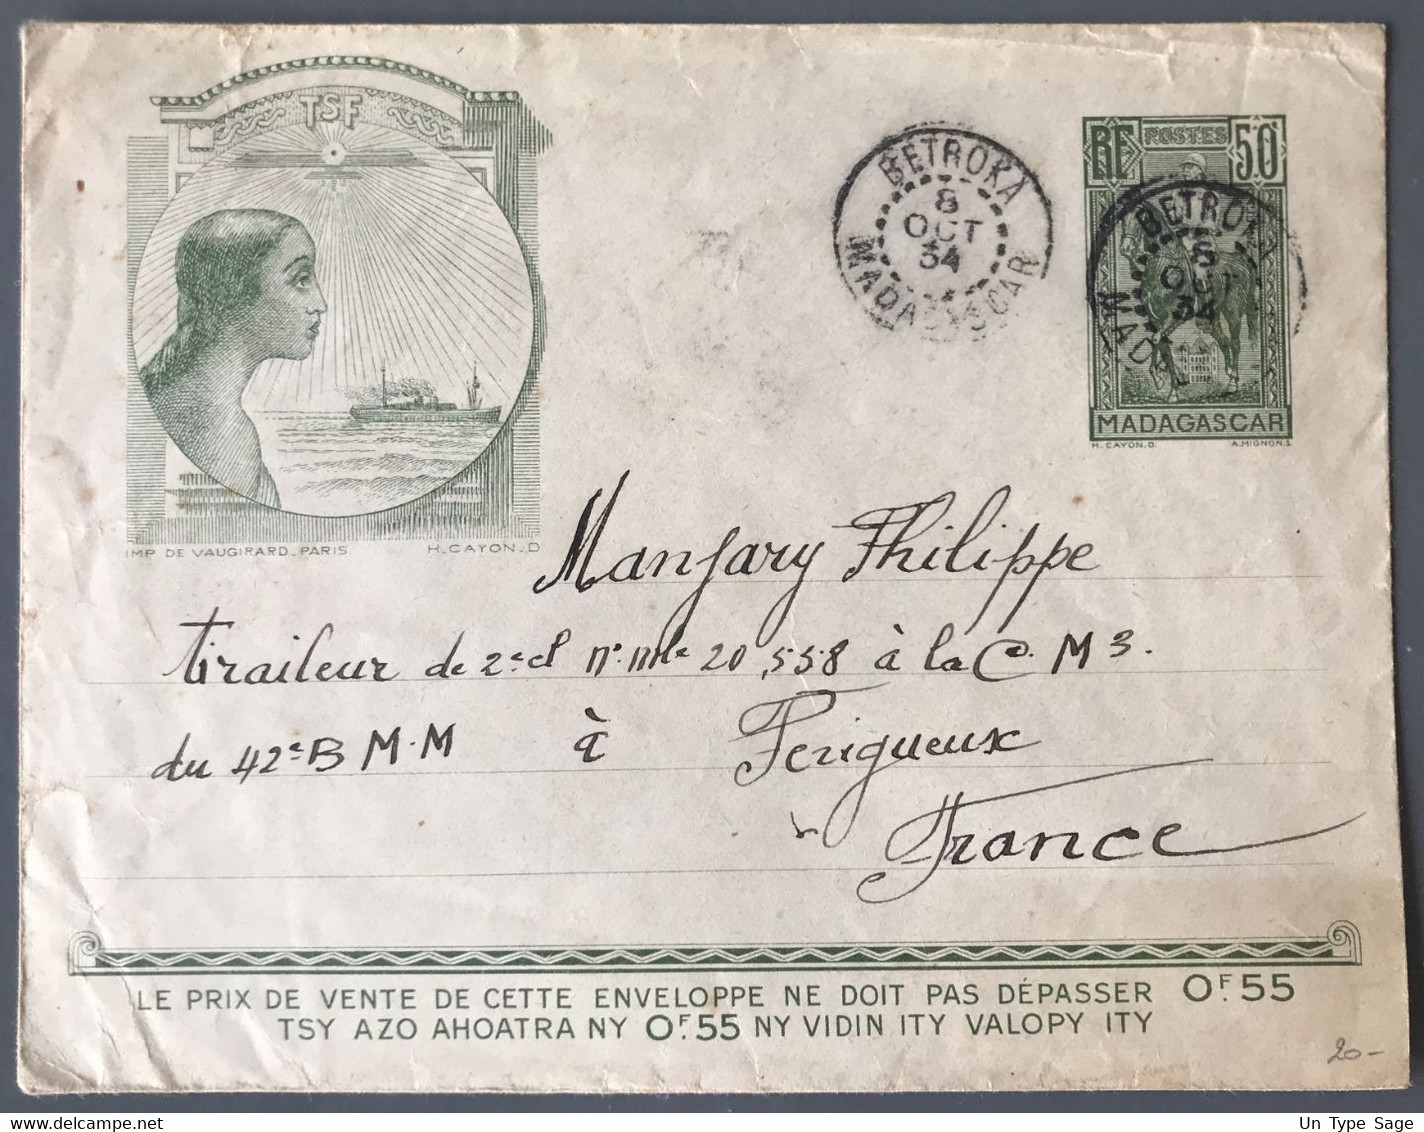 TSF
IMP DE VAUGIRARD_PARIS
H_CAYON_D
BETROKA
8
OCT
34
MADAGASCAR
RF POSTES 50c
BETROKA
8
OCT
34
MADAGASCAR
H. CAYON.D.
A.MIGNON.S
Manjary Philippe
tiraileur de 2e cl n° mle 20,558 à la Cie. M 3.
du 42e B M.M à Perigueux
France
LE PRIX DE VENTE DE CETTE ENVELOPPE NE DOIT PAS DÉPASSER 0F.55
TSY AZO AHOATRA NY 0F.55 NY VIDIN ITY VALOPY ITY
20-
Un Type Sage